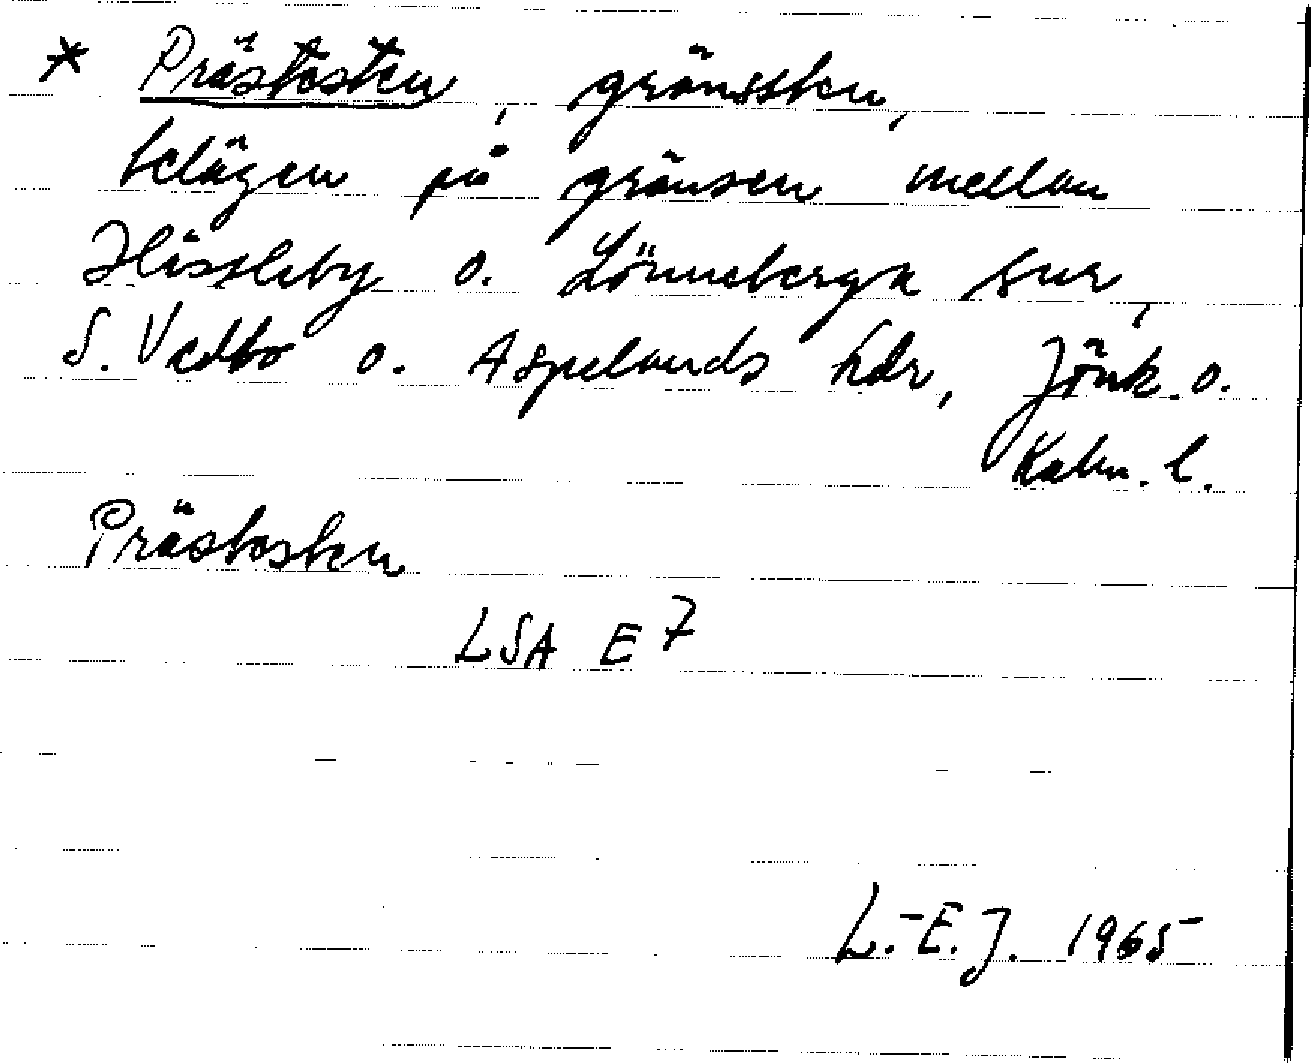 * Prästesten, gränssten,
belägen på gränsen mellan
Hässleby o. Lönneberga snr,
S. Vedbo o. Aspelands hdr, Jönk. o.
Kalm. l.
Prästesten
LSA E7
L.-E. J. 1965